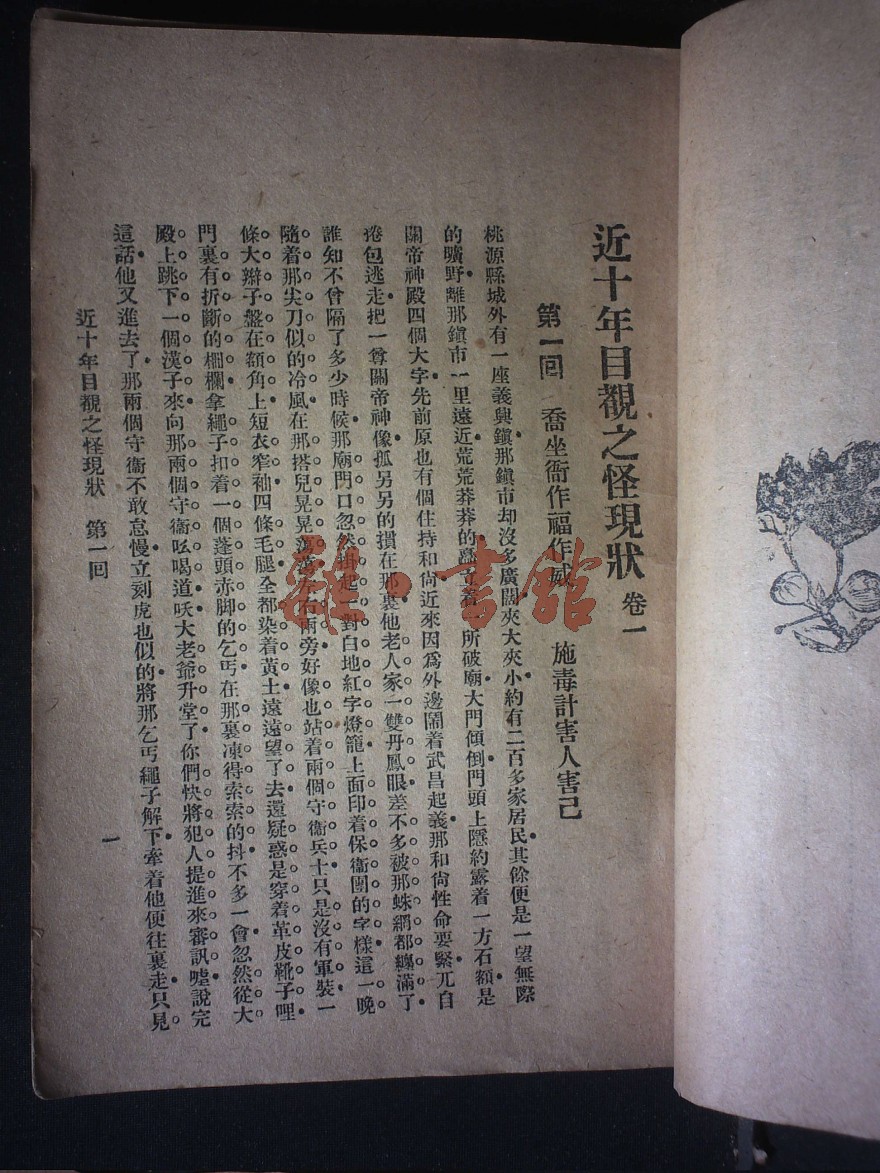 近十年目覩之怪現狀 卷一
第一回 喬坐衙作福作威 施毒計害人害己
桃源縣城外有一座義興鎭那鎭市却沒多廣闊夾大夾小約有二百多家居民其餘便是一望無際
的曠野離那鎭市一里遠近荒荒莽莽的矗立着一所破廟大門傾倒門頭上隱約露着一方石額是
關帝神殿四個大字先前原也有個住持和尙近來因爲外邊鬧着武昌起義那和尙性命要緊兀自
捲包逃走把一尊關帝神像孤另另的摜在那裏他老人家一雙丹鳳眼差不多被那蛛網都纏滿了
誰知不曾隔了多少時候那廟門口忽然掛起一對白地紅字燈籠上面印着保衞團的字樣這一晚
隨着那尖刀似的冷風在那搭兒晃晃蕩蕩左右兩旁好像也站着兩個守衞兵士只是沒有軍裝一
條大辮子盤在額角上短衣窄袖四條毛腿全都染着黃土遠遠望了去還疑惑是穿着革皮靴子哩
門裏有折斷的柵欄拿繩子扣着一個蓬頭赤脚的乞丐在那裏凍得索索的抖不多一會忽然從大
殿上跳下一個漢子來向那兩個守衞吆喝道呔大老爺升堂了你們快將犯人提進來審訊噓說完
這話他又進去了那兩個守衞不敢怠慢立刻虎也似的將那乞丐繩子解下牽着他便往裏走只見
近十年目覩之怪現狀 第一回
一
雜·書館